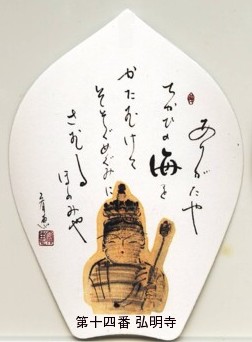 ありがたや
ちかひの海を
かたむけて
そそぐめぐみに
さむるほのみや
第十四番 弘明寺